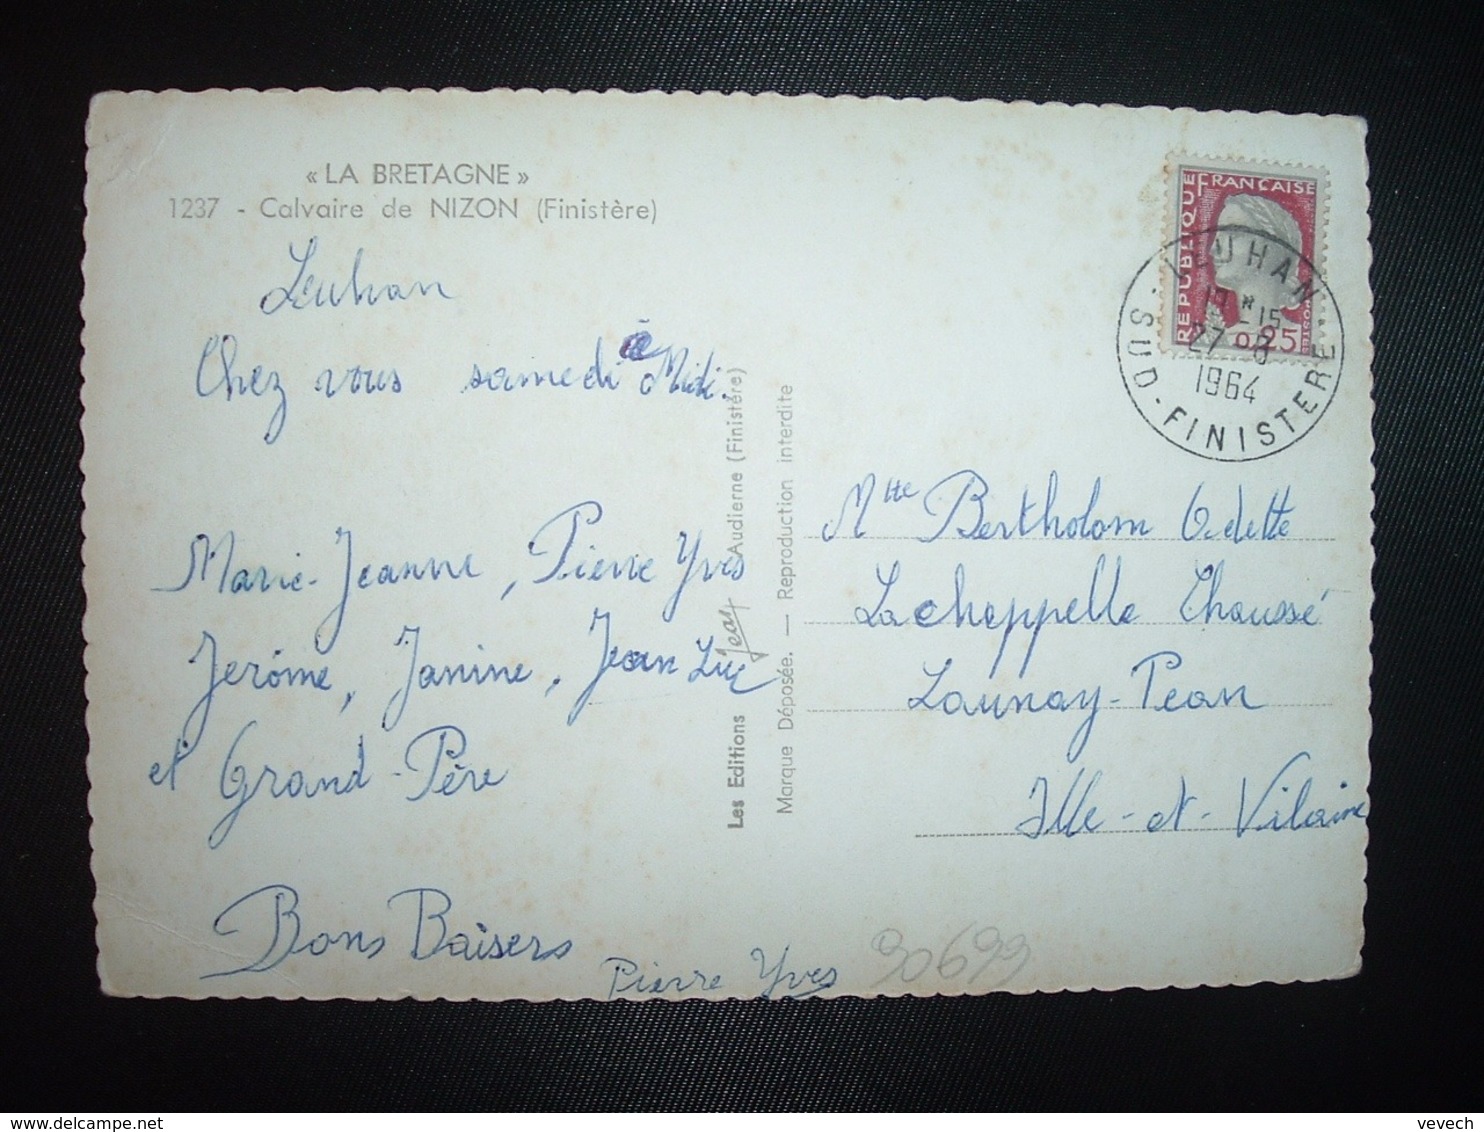 « LA BRETAGNE »
1237 - Calvaire de NIZON (Finistère)
Leuhan
Chez vous samedi à Midi.
Marie-Jeanne, Pierre Yves
Jérôme, Janine, Jean Luc
et Grand-Père
Bons Baisers
Pierre Yves
90699
Les Editions Jean Audierne (Finistère)
Marque Déposée. — Reproduction interdite
RÉPUBLIQUE FRANÇAISE
0,25
POSTES
LEUHAN
27-8
1964
SUD-FINISTERE
Mlle Bertholom Odette
La cheppelle Chaussé
Launay-Pean
Ille-et-Vilaine
vevech